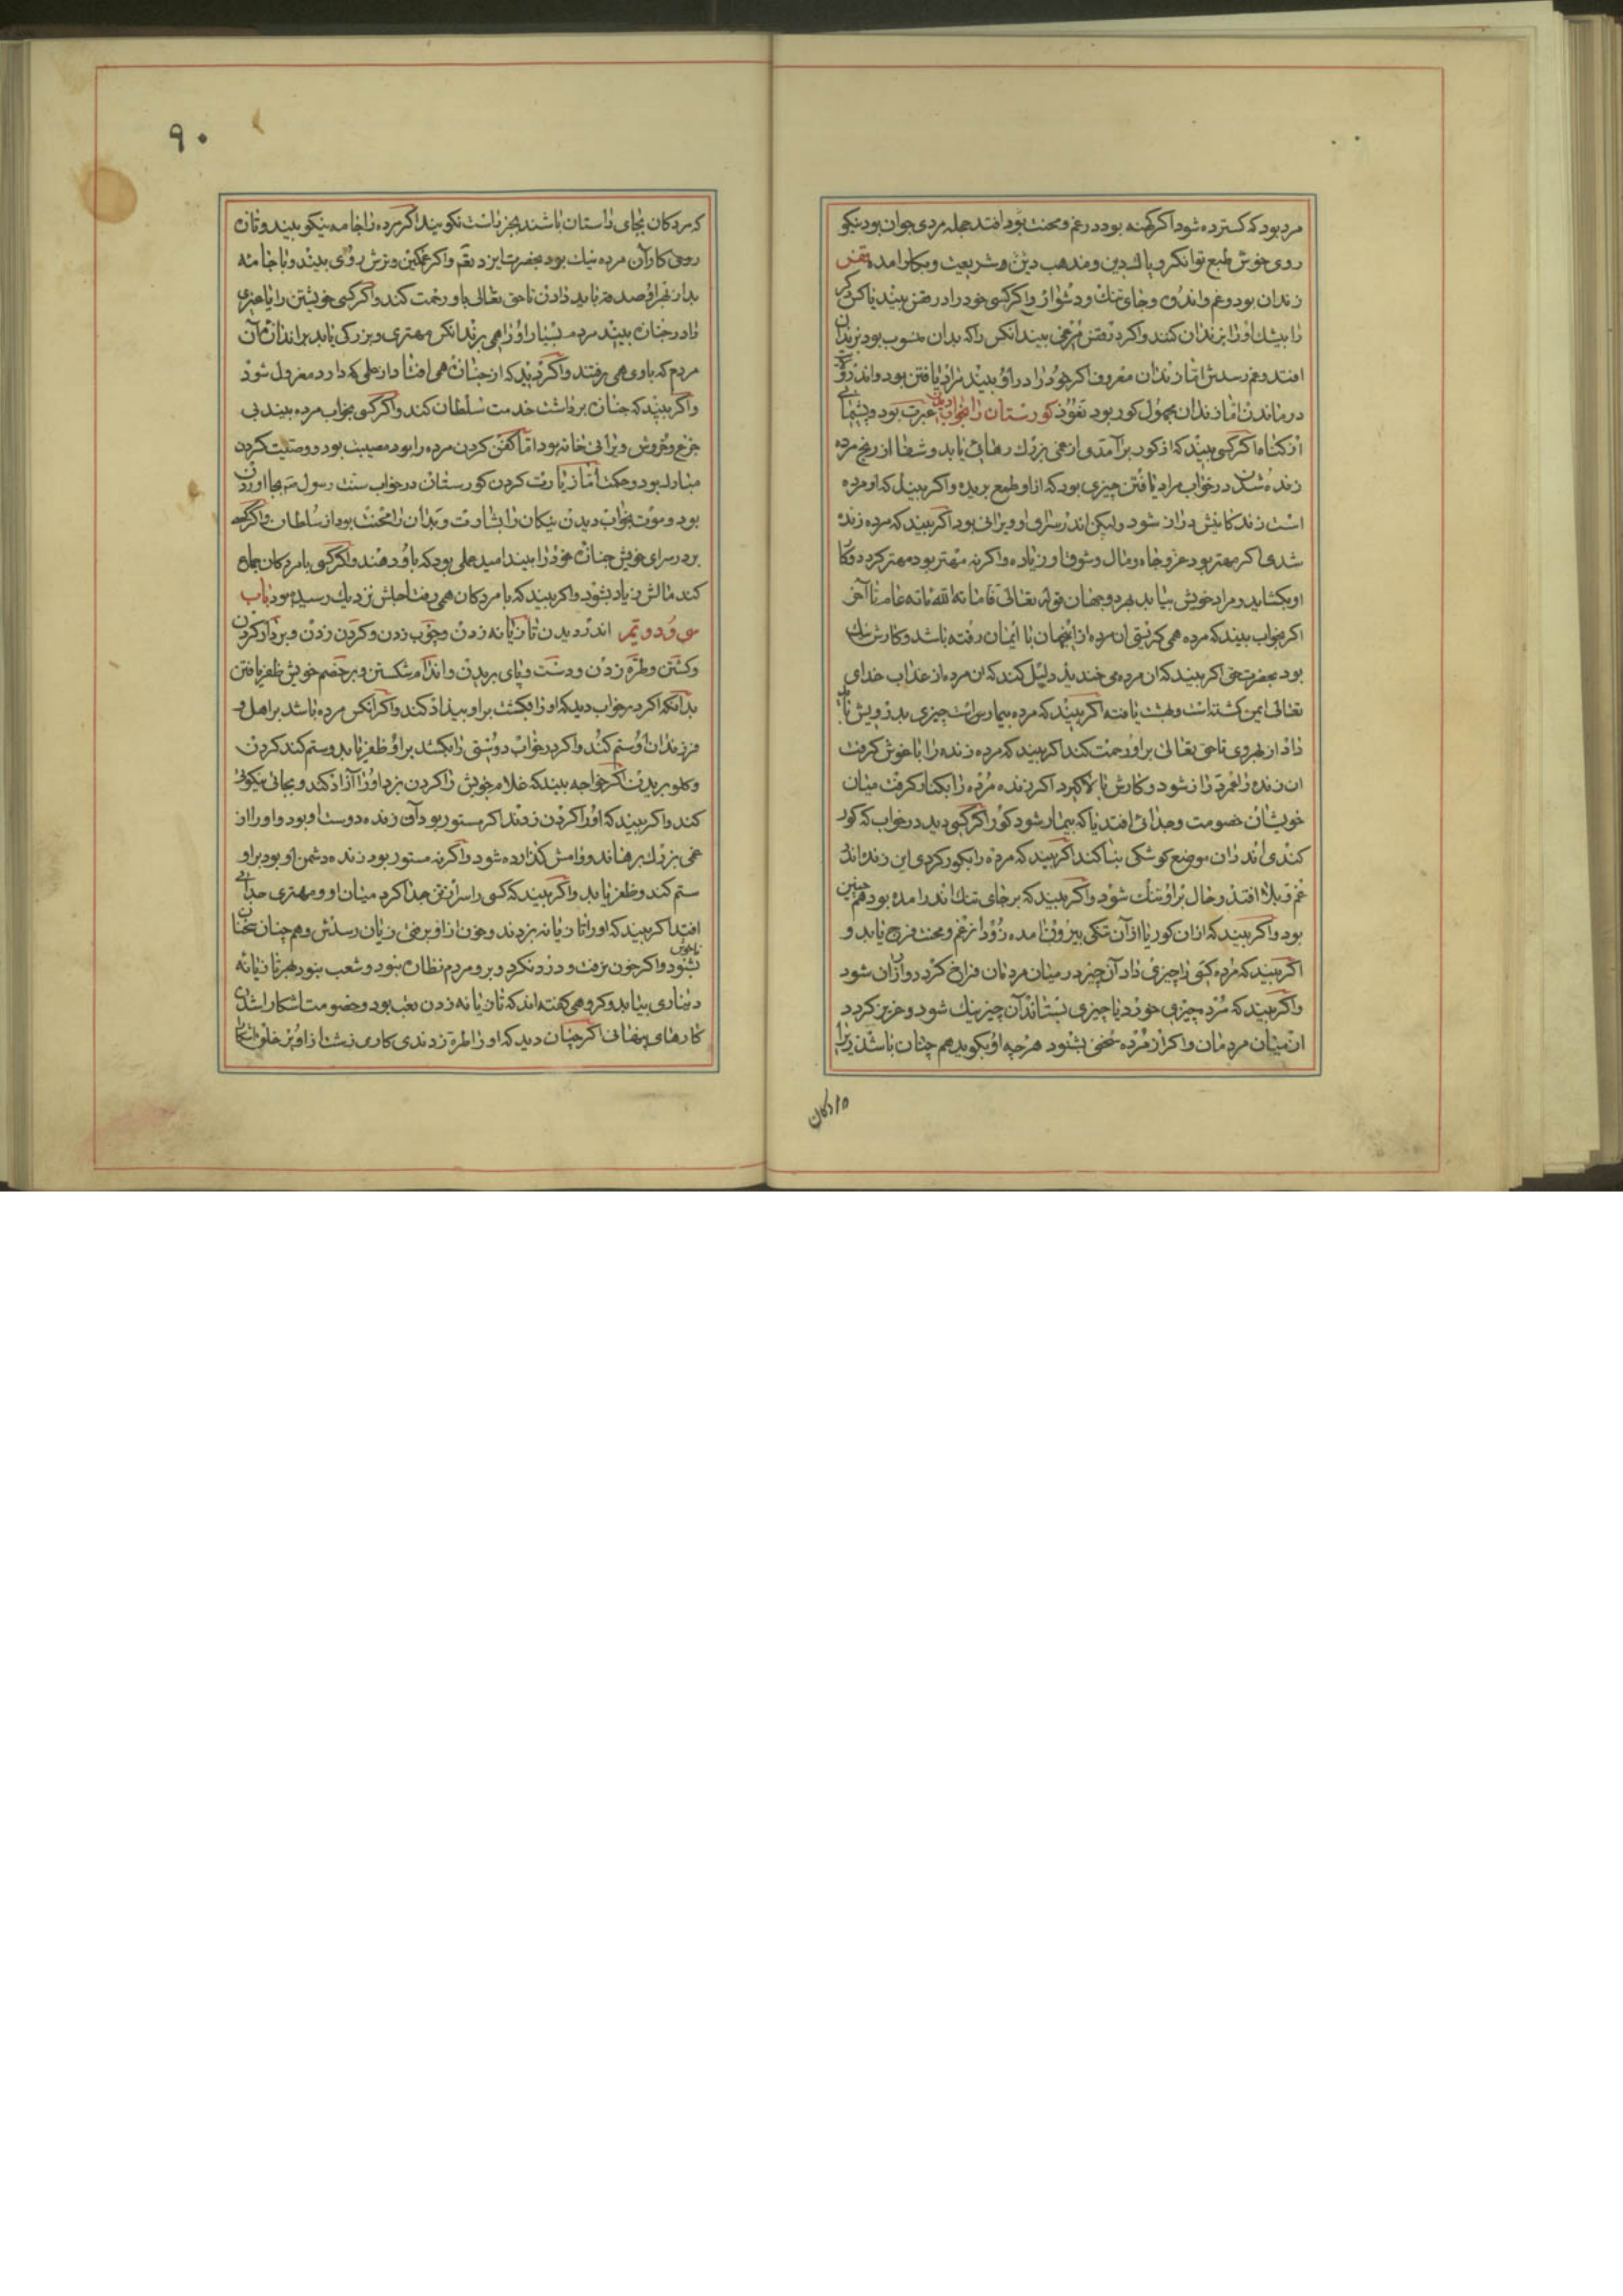 مرد بود که کسترده شود اکر کهنه بود در غم و محنت بود افتد جمله مردی جوان بود نیکو
روی خوش طبع توانکر و پاك دین و مذهب دین و شریعت و بکار امده قفس
زندان بود و غم و اندوه و جای تنك و دشوار و اکر کسی خود را در قفس بیند یا کس دیکر
را بیشك او را بزندان کنند و اکر در قفس مرغی بیند انکس را که بدان منسوب بود بزندان
افتد و غم رسدش اما زندان معروف اکر خود را در او بیند مراد یافتن بود و اندر
درماندن اما زندان مجهول کور بود نعوذ کورستان را بخواب دیدن عبرت بود و پشیمانی
از کناه اکر کسی بیند که از کور برآمدی از غمی بزرك رهائی یابد و شفا از رنج مرده
زنده شدن در خواب مراد یافتن چیزی بود که از او طمع بریده و اکر بیند که او مرده
است زندکانیش دراز شود ولیکن اندر سرای او ویرانی بود اکر بیند که مرده زنده
شدی اکر مهتر بود عز و جاه و مال و شرف او زیاده و اکر نه مهتر بود مهتر کردد و کا
او بکشاید و مراد خویش بیابد بهر دو جهان قوله تعالی فاماته الله مائه عام تا آخر
اکر بخواب بیند که مرده همی کریستی ان مرده از اینجهان با ایمان رفته باشد و کارش نیك
بود بحضرت حق اکر بیند که ان مرده می خندید دلیل کند که ان مرده از عذاب خدای
تعالی ایمن کشته است و بهشت یافته اکر بیند که مرده بیمارست چیزی بدرویش باید
داد از بهر وی تا حق تعالی بر او رحمت کند اکر بیند که مرده زنده را باغوش کرفت
ان زنده را عمر دراز شود و کارش بالا کیرد اکر زنده مرده را بکنار کرفت میان
خویشان خصومت و جدائی افتد یا که بیمار شود کور اکر کسی دید در خواب که کور
کندی اندر ان موضع کوشکی بنا کند اکر بیند که مرده را بکور کردی این زنده اندر
غم و بلا افتد و حال بر او تنك شود و اکر بیند که بر جای تنك اندر امده بود هم چنین
بود و اکر بیند که از ان کور یا از آن تنکی بیرون امده زود از غم و محنت فرج یابد و
اکر بیند که مرده کسی را چیزی داد آن چیز در میان مردمان فراخ کردد و ارزان شود
و اکر بیند که مرده چیزی خورد یا چیزی بستاند آن چیز نیك شود و عزیز کردد
اندر میان مردمان و اکر از مرده سخنی بشنود هر چه او بکوید هم چنان باشد زیرا
مردکان
۹۰
که مردکان بجای راستان باشند بجز راست نکویند اکر مرده را جامه نیکو بیند و تازه
روی کار آن مرده نیك بود بحضرت ایزد تع و اکر غمکین و ترش روی بیند و با جامه
بد از بهر او صدقه باید دادن تا حق تعالی باو رحمت کند و اکر کسی خویشتن را یا غیری
را در جنازه بیند مردم بسیار او را همی برند انکس مهتری و بزرکی یابد بر اندازه آن
مردم که با وی همی رفتند و اکر دید که از جنازه همی افتاد از عملی که دارد معزول شود
و اکر بیند که جنازه برداشت خدمت سلطان کند و اکر کسی بخواب مرده بیند بی
جزع و خروش ویرانی خانه بود اما کفن کردن مرده را بود مصیبت بود و وصیت کردن
مبارك بود و حکمت اما زیارت کردن کورستان در خواب سنت رسول صم بجا اوردن
بود و موت بخواب دیدن نیکان را بشارت و بدان را محنت بود از سلطان و اکر کسی
بر در سرای خویش جنازه خود را بیند امید عملی بود که باو دهند و اکر کسی با مردکان جماع
کند مالش زیاد بشود و اکر بیند که با مردکان همی رفت اجلش نزدیك رسیده بود باب
سی و دویم اندر دیدن تازیانه زدن و چوب زدن و کردن زدن و بردار کردن
و کشتن و طره زدن و دست و پای بریدن و اندام شکستن و بر خصم خویش ظفر یافتن
بدانکه اکر در خواب دید که او را بکشت بر او بیداد کند و اکر آنکس مرده باشد بر اهل و
فرزندان او ستم کند و اکر در خواب دوستی را بکشد بر او ظفر یابد و ستم کند کردن
و کلو بریدن اکر خواجه بیند که غلام خویش را کردن بزد او را آزاد کند و بجای نیکوئی
کند و اکر بیند که او را کردن زدند اکر مستور بود آن زننده دوست او بود و او را از
غمی بزرك برهاند و وامش کذارده شود و اکر نه مستور بود زننده دشمن او بود بر او
ستم کند و ظفر یابد و اکر بیند که کسی را سر از تن جدا کرد میان او و مهتری جدائی
افتد اکر بیند که او را تازیانه بزدند و خون از او برفت زیان رسدش و هم چنان سخنان
ناخوش
بشنود و اکر خون نرفت و درد نکرد و بر و مردم نظاره نبود و شغب نبود بهر تازیانه
دیناری بیابد و کروهی کفته اند که تازیانه زدن تعب بود و خصومت اشکارا شدن
کارهای پنهانی اکر چنان دید که او را طره زدندی کاری زشت از او بر خلق اشکارا